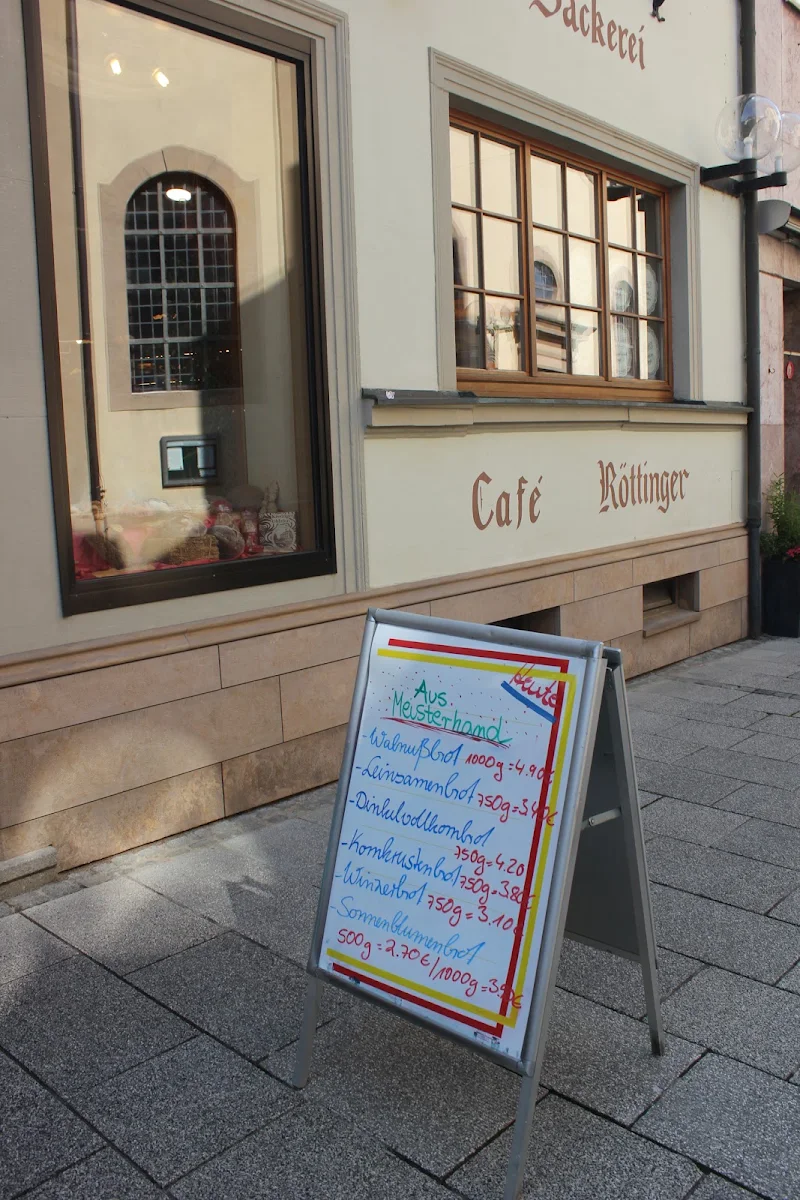 Bäckerei
Café Röttinger
Heute
Aus
Meisterhand
-Walnußbrot 1000g=4.90€
-Leinsamenbrot 750g=3.40€
-Dinkelvollkornbrot
750g=4.20
-Kornkrustenbrot 750g=3.80€
-Winzerbrot 750g=3.10€
-Sonnenblumenbrot
500g=2.70€/1000g=3.90€